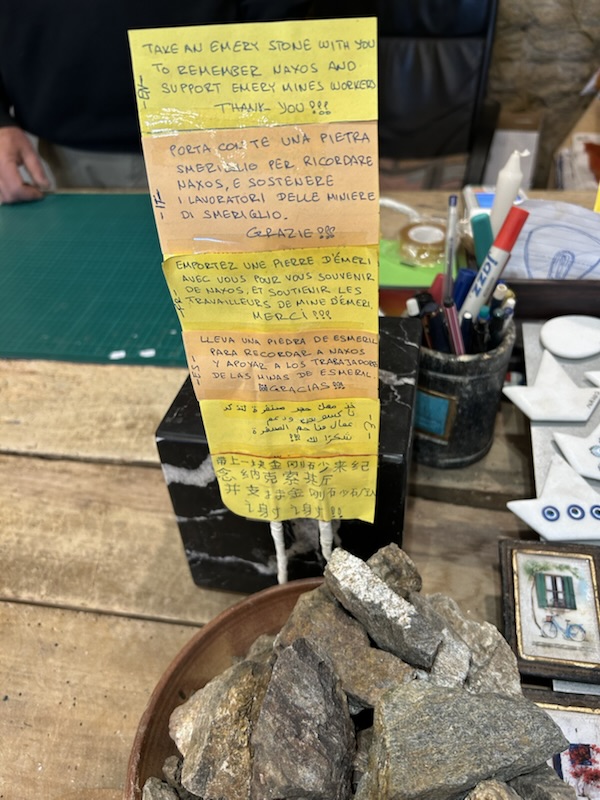 TAKE AN EMERY STONE WITH YOU
TO REMEMBER NAXOS AND
SUPPORT EMERY MINES WORKERS
THANK YOU!!!
PORTA CON TE UNA PIETRA
SMERIGLIO PER RICORDARE
NAXOS, E SOSTENERE
I LAVORATORI DELLE MINIERE
DI SMERIGLIO.
GRAZIE!!!
EMPORTEZ UNE PIERRE D'ÉMERI
AVEC VOUS POUR VOUS SOUVENIR
DE NAXOS, ET SOUTIENIR LES
TRAVAILLEURS DE MINE D'ÉMERI.
MERCI!!!
LLEVA UNA PIEDRA DE ESMERIL
PARA RECORDAR A NAXOS
Y APOYAR A LOS TRABAJADORE
DE LAS MINAS DE ESMERIL
!!!GRACIAS!!!
معك حجر صنفرة لتذكر
عمال مناجم الصنفرة
شكرًا لك!!!
带上一块金刚砂来纪
念纳克索斯
并支持金刚砂
谢谢!!
JAZZ